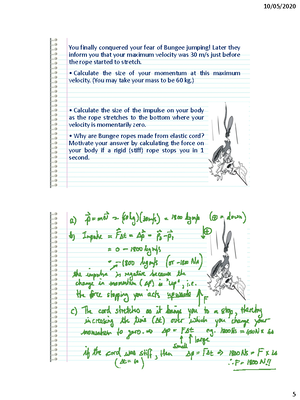 10/05/2020
You finally conquered your fear of Bungee jumping! Later they
inform you that your maximum velocity was 30 m/s just before
the rope started to stretch.
• Calculate the size of your momentum at this maximum
velocity. (You may take your mass to be 60 kg.)
• Calculate the size of the impulse on your body
as the rope stretches to the bottom where your
velocity is momentarily zero.
• Why are Bungee ropes made from elastic cord?
Motivate your answer by calculating the force on
your body if a rigid (stiff) rope stops you in 1
second.
a) p⃗ = mv⃗ = (60 kg)(30 m/s) = 1800 kg m/s (⊕ = down)
b) Impulse = FΔt = Δp = p₂ - p₁
= 0 - 1800 kg m/s
= -1800 kg m/s (or -1800 Ns)
the impulse is negative because the
change in momentum (Δp) is "up", i.e.
the force stopping you acts upwards ↑F
c) The cord stretches as it brings you to a stop, thereby
increasing the time (Δt) over which you change your
momentum to zero. ⇒ Δp = FΔt eg. 1800 Ns =
small large
if the cord was stiff, then Δp = FΔt ⇒ 1800 Ns = F × 1s
∴ F = 1800 N!!
5